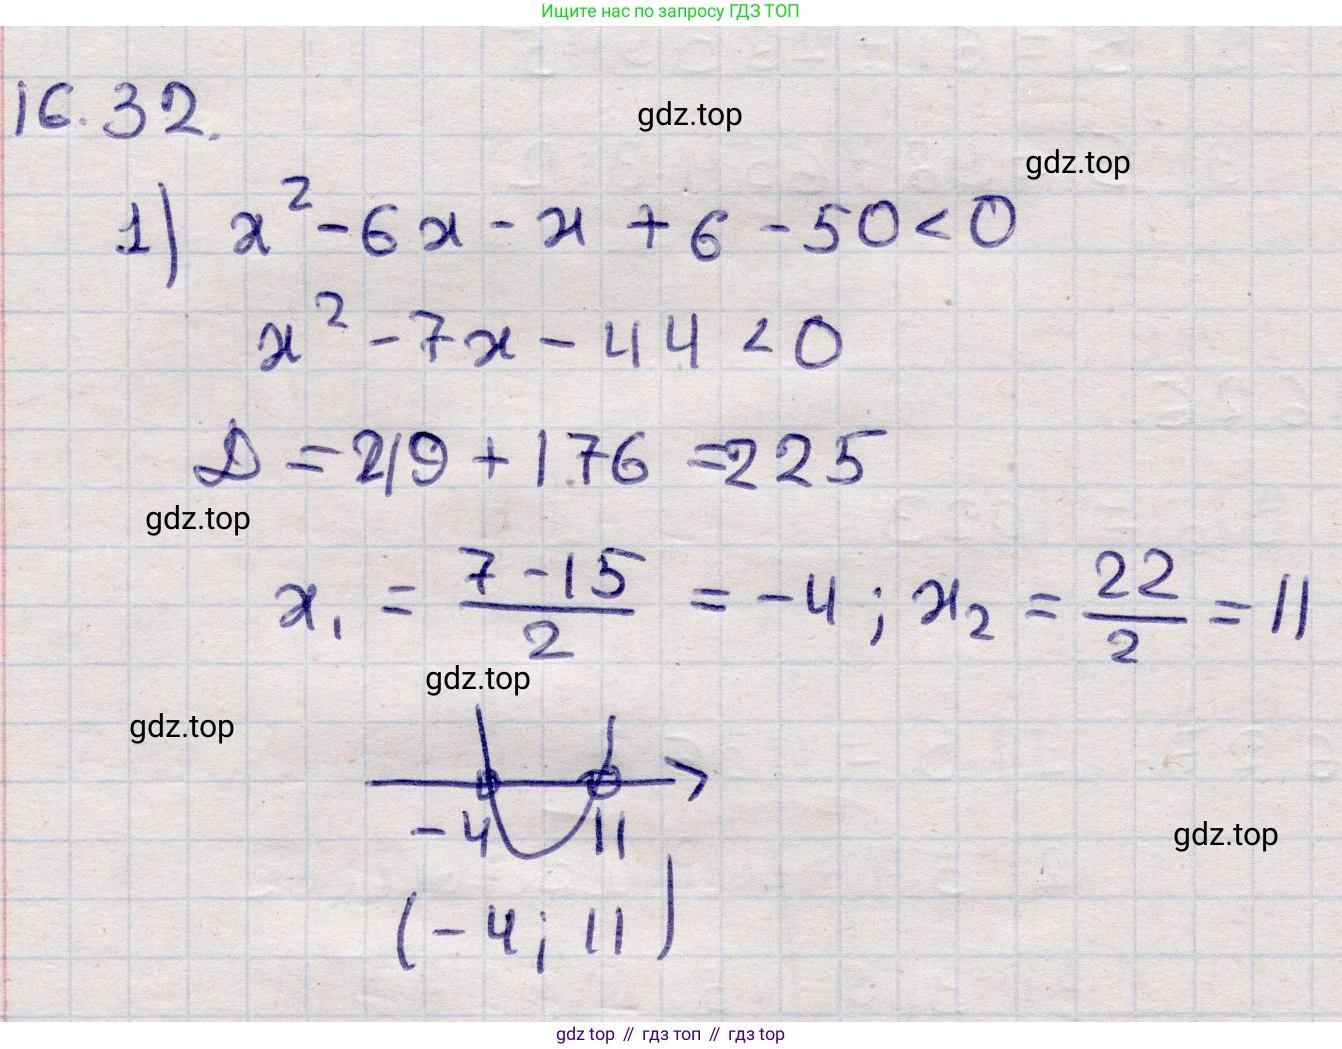 Ищите нас по запросу ГДЗ ТОП
16.32.
gdz.top
gdz.top
1) x² - 6x - x + 6 - 50 < 0
x² - 7x - 44 < 0
D = 49 + 176 = 225
gdz.top
x₁ = (7 - 15)/2 = -4; x₂ = 22/2 = 11
gdz.top
gdz.top
-4 11
gdz.top
(-4; 11)
gdz top // гдз топ // гдз top